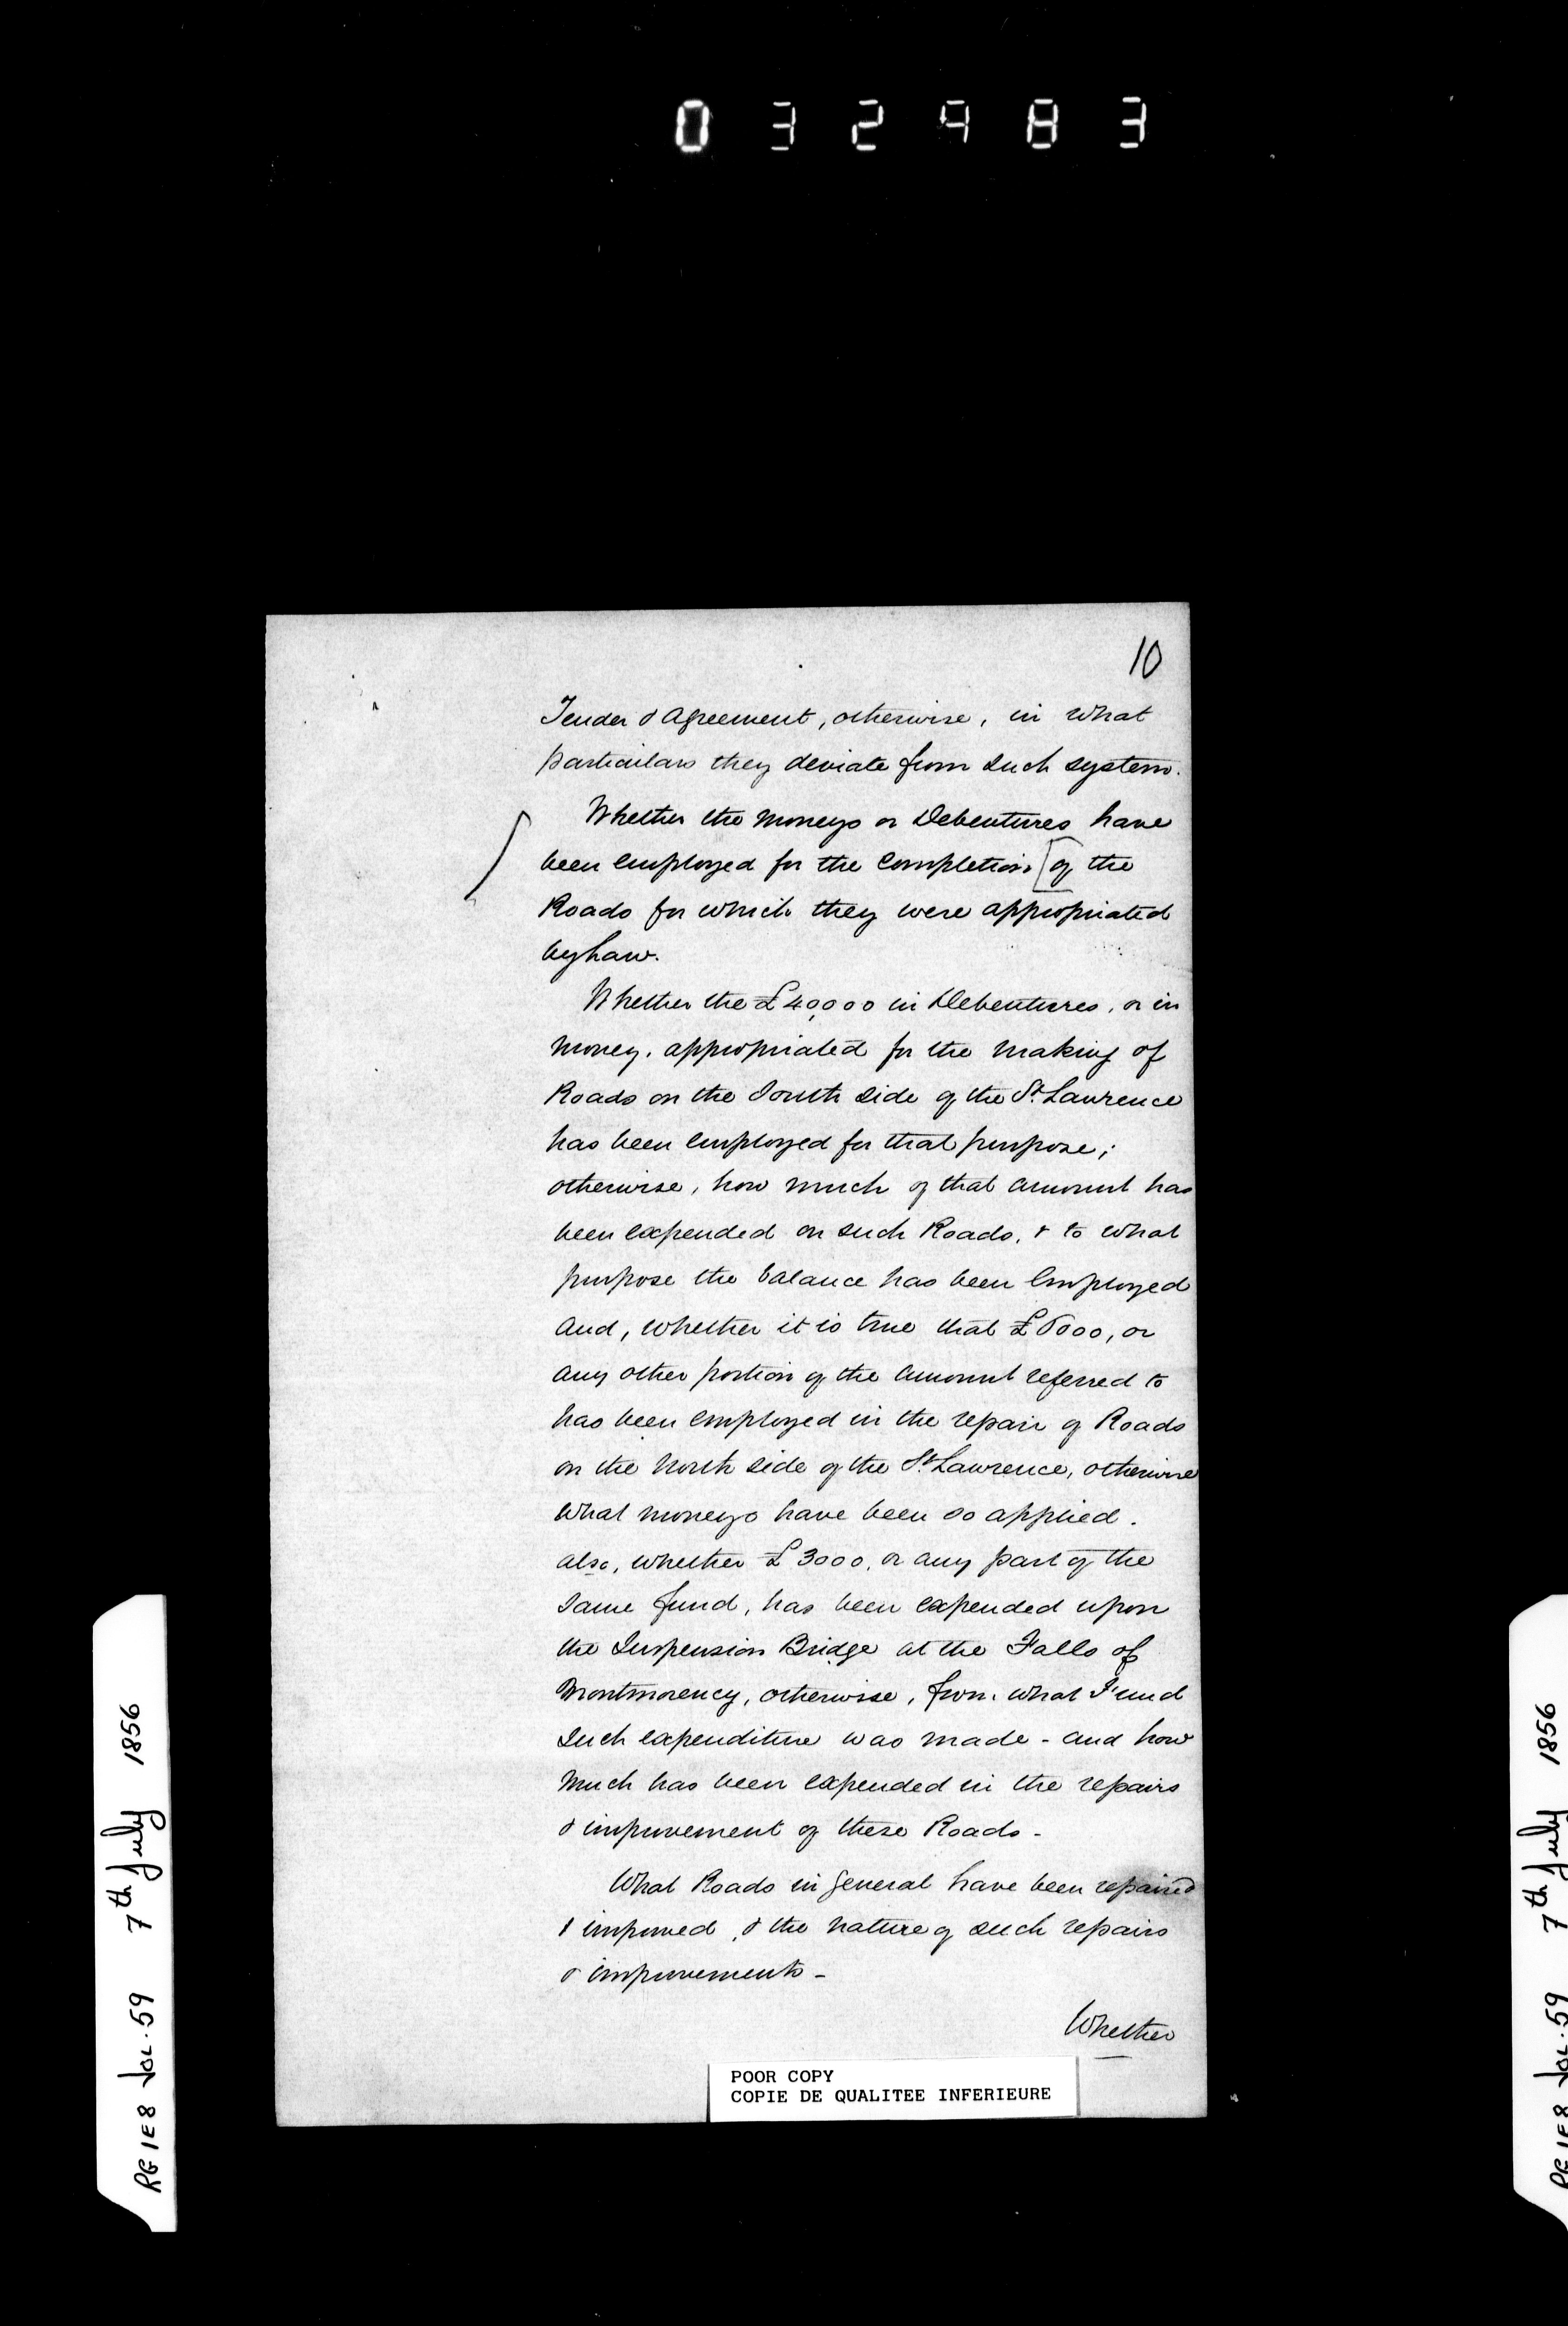 032983
10
Tender & Agreement, otherwise, in what
particulars they deviate from such system.
Whether the moneys or Debentures have
been employed for the completion [of the
Roads for which they were appropriated
by Law.
Whether the £40,000 in Debentures, or in
money, appropriated for the making of
Roads on the South side of the St. Lawrence
has been employed for that purpose;
otherwise, how much of that amount has
been expended on such Roads, & to what
purpose the balance has been employed
and, whether it is true that £6000, or
any other portion of the amount referred to
has been employed in the repair of Roads
on the North side of the St. Lawrence, otherwise
what moneys have been so applied.
also, whether £3000, or any part of the
same fund, has been expended upon
the Suspension Bridge at the Falls of
Montmorency, otherwise, from what Fund
such expenditure was made - and how
much has been expended in the repairs
& improvement of these Roads -
What Roads in general have been repaired
& improved, & the nature of such repairs
& improvements -
Whether
POOR COPY
COPIE DE QUALITEE INFERIEURE
RG 1 E 8 Vol. 59 7th July 1856
RG 1 E 8 Vol. 59 7th July 1856